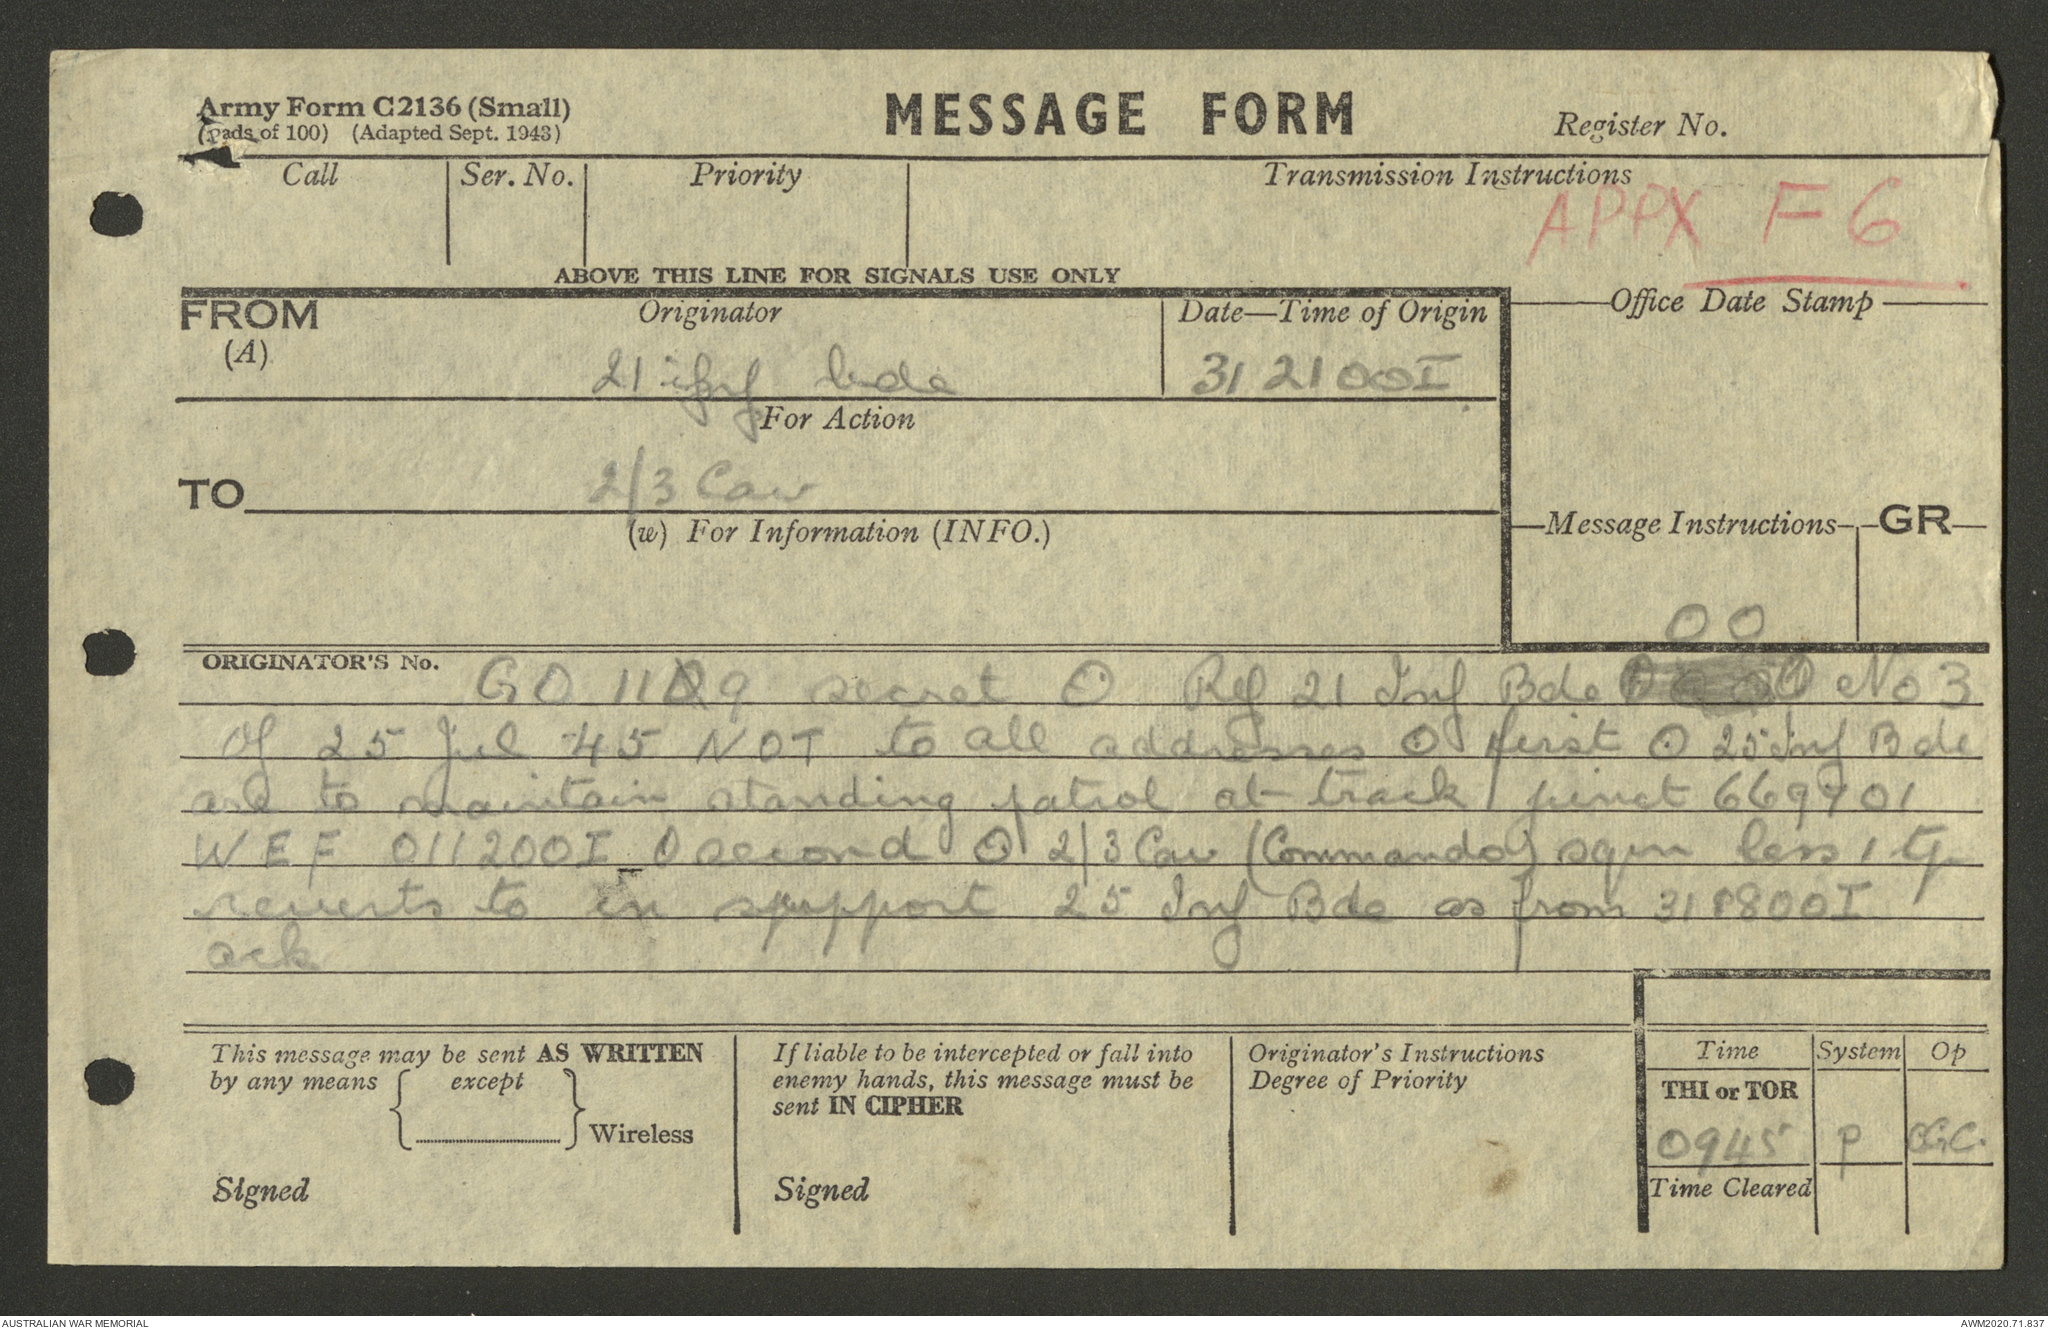 Army Form C2136 (Small)
(Pads of 100) (Adapted Sept. 1943)
MESSAGE FORM
Register No.
Call Ser. No. Priority Transmission Instructions
APPX F6
ABOVE THIS LINE FOR SIGNALS USE ONLY
FROM (A) Originator Date—Time of Origin Office Date Stamp
21 inf bde 312100I
For Action
TO 2/3 Cav
(w) For Information (INFO.)
Message Instructions GR
OO
ORIGINATOR'S No. GO 1109 secret O Ref 21 Inf Bde O O No 3
of 25 Jul 45 NOT to all addresses O first O 25 Inf Bde
are to maintain standing patrol at track junct 669701
WEF 011200I O second O 2/3 Cav (Commando) sqn less 1 tp
reverts to in support 25 Inf Bde as from 311800I
ack
This message may be sent AS WRITTEN
by any means except
Wireless
Signed
If liable to be intercepted or fall into
enemy hands, this message must be
sent IN CIPHER
Signed
Originator's Instructions
Degree of Priority
Time System Op
THI or TOR
0945 P
Time Cleared
AUSTRALIAN WAR MEMORIAL
AWM2020.71.837